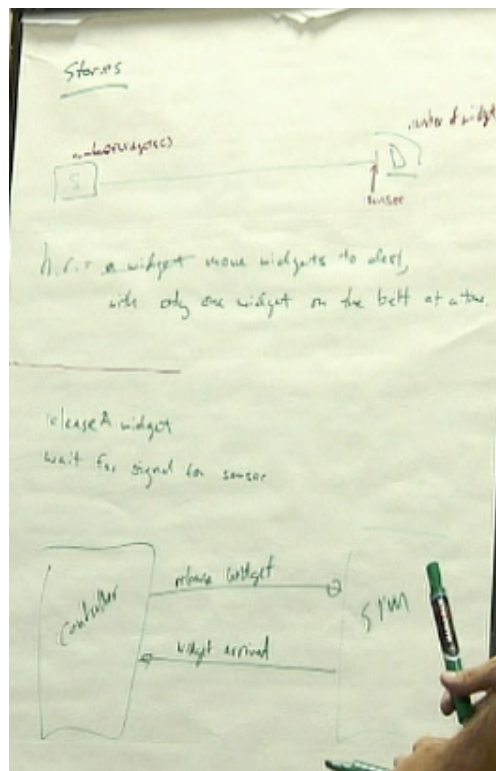 Stories
number of widgets
S
D
sensor
move widgets to dest,
with only one widget on the belt at a time.
release A widget
wait for signal for sensor
Controller
release widget
SIM
widget arrived